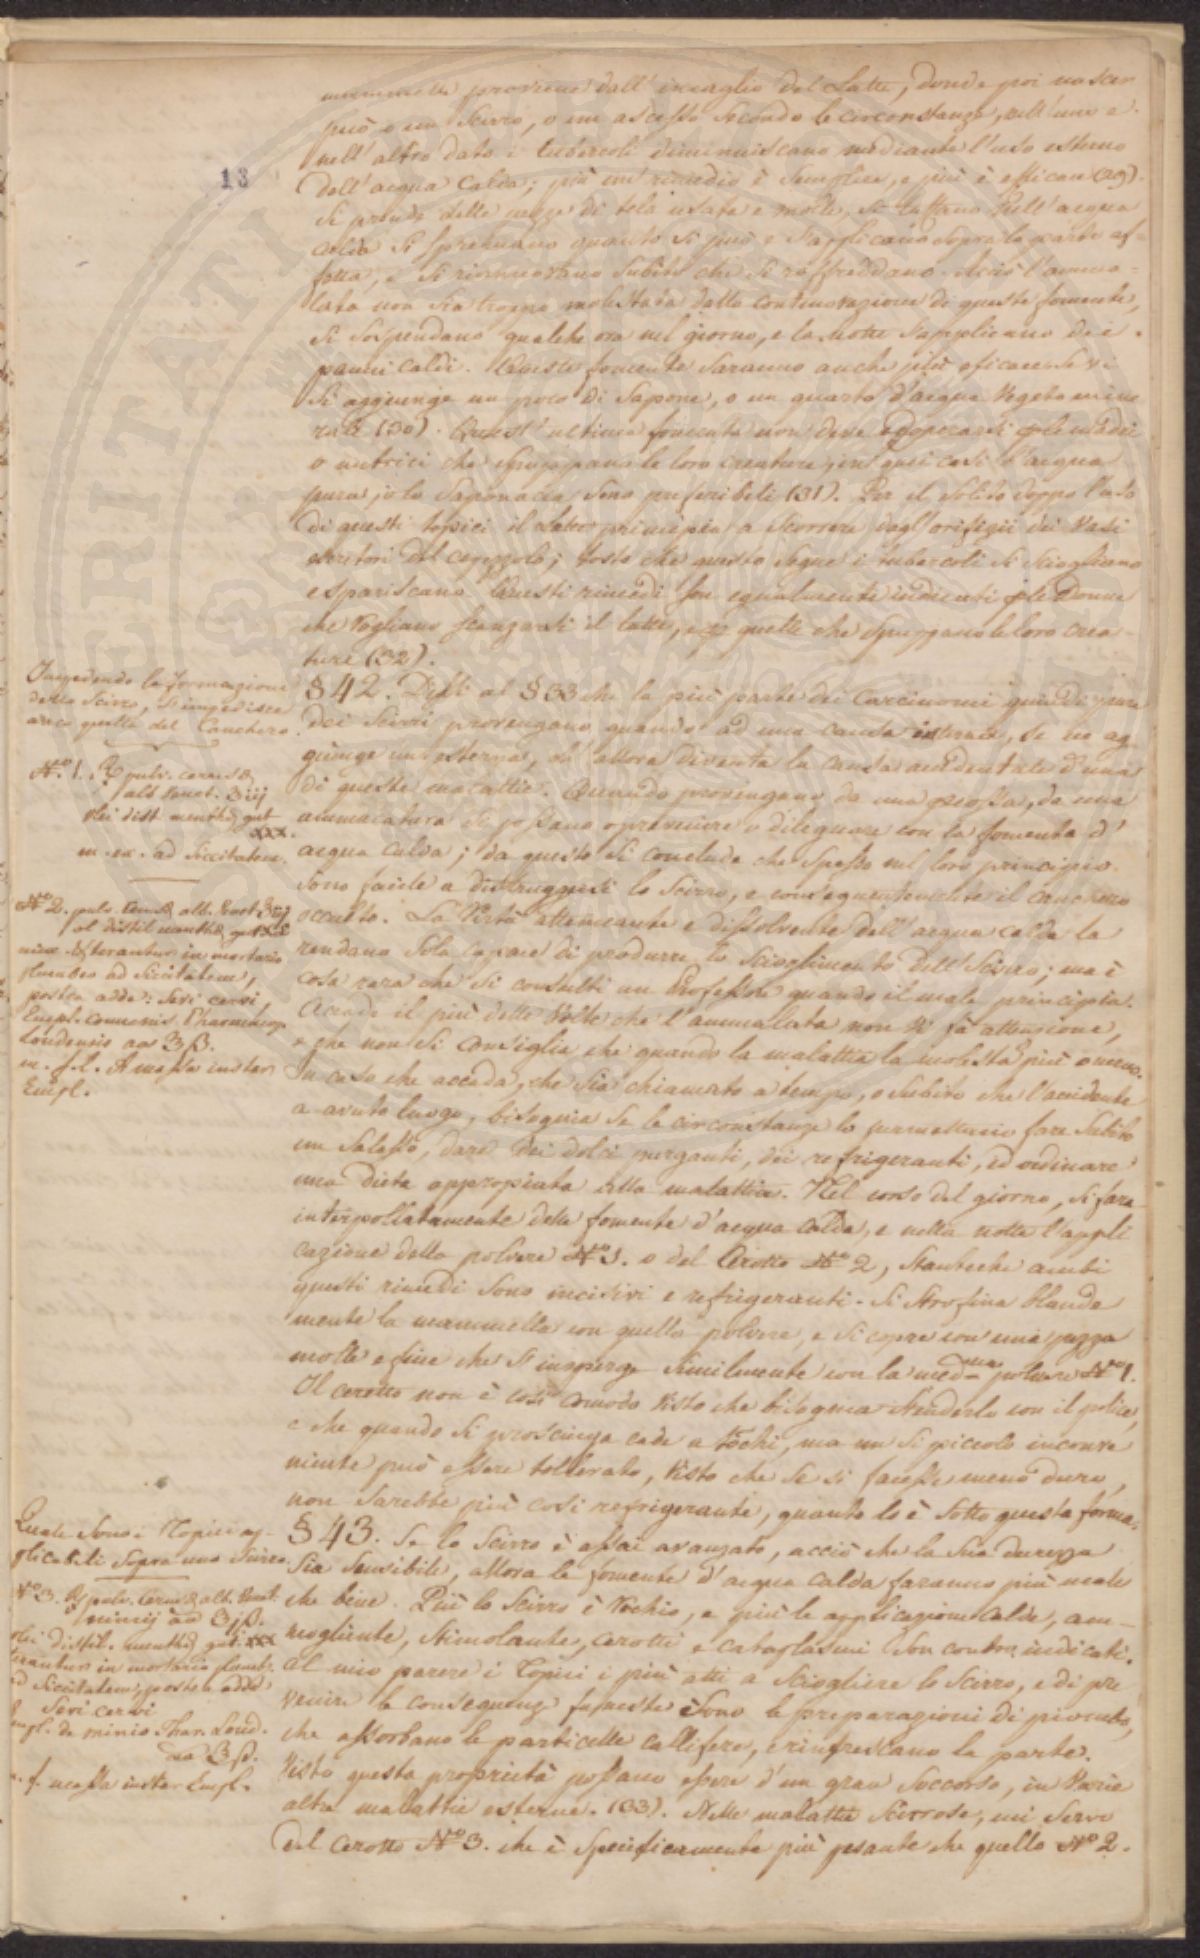 13
mammelle proviene dall' incaglio del Latte, donde poi nascer
può o un Scirro, o un ascesso secondo le circonstanze, nell' uno e
nell' altro dato i tubercoli diminuiscano mediante l'uso esterno
dell' acqua Calda; più un rimedio è Semplice, e più è efficace (29).
Si prende delle pezze di tela usata e molle, Si tuffano nell' acqua
Calda Si Spremano quanto si può e S'applicano sopra la parte af-
fetta, e Si rinnuovano Subito che Si raffreddano. Acciò l'amma-
lata non Sia troppo molestata dalla continovazione di queste fomente,
Si Sospendano qualche ora nel giorno, e la notte s'applicano dei
panni Caldi. Queste fomente Saranno anche più eficaci se vi
Si aggiunge un poco di Sapone, o un quarto d'acqua Vegeto mine
rale (30). Quest' ultima fomenta non deve adoperarsi per le madri
o nutrici che spruppano le loro creature, in quei casi l'acqua
pura, o la Saponacea Sono preferibili (31). Per il Solito doppo l'uso
di questi topici il Latte principia a Scorrere dagl' orifizii dei Vasi
escritori del capezzolo; tosto che questo Segue i tubercoli Si Sciogliono
e spariscano. Questi rimedi Son egualmente indicenti per le Donne
che Vogliano Scanzarsi il latte, e per quelle che Spruppano le loro crea-
ture (32).
Impedendo la formazione
dello Scirro, s'impedisce
anco quella del Canchero.
§ 42. Dissi al § 33 che la più parte dei Carcinomi quindi pure
dei Scirri provengano quando ad una causa interna, Se ne ag-
giunge un' esterna, ed allora diventa la causa accidentale d'una
di queste malattie. Quando provengano da una percossa, da una
ammacatura Si possano oprevenire o dileguare con la fomenta d'
acqua calda; da questo Si conclude che Spesso nel loro principio
Sono facile a distruggersi lo Scirro, e consequentemente il Canchero
occulto. La Virtù attenuante e dissolvente dell' acqua calda la
rendano Sola capace di produrre lo Scioglimento dell' Scirro; ma è
cosa rara che Si consulti un Professore quando il male principia.
Acade il più delle Volte che l'ammalata non vi fà attenzione,
e che non Si Consiglia che quando la malattia la molesta più o meno.
In caso che accada, che Sia chiamato a tempo, o Subito che l'accidente
a avuto luogo, bisognia Se le circonstanze lo permettano fare Subito
un Salasso, dare dei dolci purganti, dei refrigeranti, ed ordinare
una Dieta appropiata alla malattia. Nel corso del giorno, Si farà
interpollatamente delle fomente d'acqua Calda, e nella notte l'appli
cazione della polvere N° 1. o del Cerotto N° 2, Stanteche ambi
questi rimedi Sono incisivi e refrigeranti. Si Strofina blanda
mente la mammella con quella polvere, e Si copre con una pezza
molle e fine che S'insperge Similmente con la med.ma polvere N° 1.
Il cerotto non è così comodo Visto che bisognia Stenderlo con il police,
e che quando Si prosciuga cade a tochi, ma un Si piccolo inconve
niente può essere tollerato, Visto che Se si facesse meno duro,
non Sarebbe più così refrigerante, quanto lo è Sotto questa forma.
N° 1. ℞ pulv. cerusæ
alb Venet. ʒ iij
Olei dist menthæ gut
xxx.
m. ex. ad Siccitatem.
N° 2. pulv. Cerusæ alb. Venet ʒ iij
ol distil menthæ gut xxx
misce & terantur in mortario
plumbeo ad Siccitatem,
postea adde: Sevi cervi,
Empl. Communis Pharmacop
Londensis aa ʒ ß.
m. f. l. A massa instar
Empl.
Quale Sono i Topici ap-
plicabili Sopra uno Scirro.
§ 43. Se lo Scirro è assai avanzato, acciò che la Sua durezza
Sia Sensibile, allora le fomente d'acqua calda faranno più male
che bene. Più lo Scirro è Vechio, e più le applicazione Calde, am-
mogliente, Stimolante, Cerotti e cataplasmi Son contro indicati.
Al mio parere i Topici i più atti a Sciogliere lo Scirro, e di pre
venire le consequenze funeste Sono le preparazioni di piombo,
che assorbano le particelle callifere, e rinfrescano la parte.
Visto questa proprietà possano essere d'un gran Soccorso, in Varie
altre malattie esterne. (33). Nelle malattie Scirrose, mi Servo
del Cerotto N° 3. che è Specificamente più pesante che quello N° 2.
N° 3. ℞ pulv. Cerusæ alb. Venet.
minij aa ʒ jß.
Olei distil. menthæ gut. xxx
terantur in mortario plumb.
ad Siccitatem, postea adde
Sevi cervi
Empl. de minio Phar. Lond.
aa ʒ ß.
m. f. massa instar Empl.